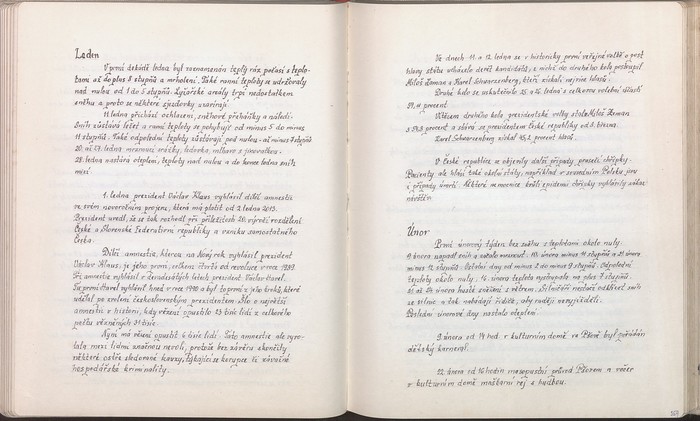 Leden
V první dekádě ledna byl zaznamenán teplý ráz počasí s teplo-
tami až do plus 8 stupňů a mrholení. Také ranní teploty se udržovaly
nad nulou od 1 do 5 stupňů. Lyžařské areály trpí nedostatkem
sněhu a proto se některé sjezdovky uzavírají.
11. ledna přichází ochlazení, sněhové přeháňky a náledí.
Sníh zůstává ležet a ranní teploty se pohybují od minus 5 do minus
11 stupňů. Také odpolední teploty zůstávají pod nulou - až minus 7 stupňů
20. až 27. ledna mrznoucí srážky, ledovka, mlhavo s jinovatkou.
28. ledna nastává oteplení, teploty nad nulou a do konce ledna sníh
mizí.
1. ledna prezident Václav Klaus vyhlásil dílčí amnestii
ve svém novoročním projevu, která má platit od 2. ledna 2013.
Prezident uvedl, že se tak rozhodl při příležitosti 20. výročí rozdělení
České a Slovenské Federativní republiky a vzniku samostatného
Česka.
Dílčí amnestie, kterou na Nový rok vyhlásil prezident
Václav Klaus, je jeho první, celkem čtvrtá od revoluce v roce 1989.
Tři amnestie vyhlásil v devadesátých letech prezident Václav Havel.
Tu první Havel vyhlásil hned v roce 1990 a byl to první z jeho kroků, které
udělal po zvolení československým prezidentem. Šlo o největší
amnestii v historii, kdy vězení opustilo 23 tisíc lidí z celkového
počtu vězněných 31 tisíc.
Nyní má vězení opustit 6 tisíc lidí. Tato amnestie ale vyvo-
lala mezi lidmi značnou nevoli, protože bez závěru skončily
některé ostře sledované kauzy, týkající se korupce či závažné
hospodářské kriminality.
Ve dnech 11. a 12. ledna se v historicky první veřejné volbě o post
hlavy státu utkalo devět kandidátů, z nichž do druhého kola postoupil
Miloš Zeman a Karel Schwarzenberg, kteří získali nejvíce hlasů.
Druhé kolo se uskutečnilo 25. a 26. ledna s celkovou volební účastí
59,11 procent.
Vítězem druhého kola prezidentské volby stal Miloš Zeman
s 54,8 procent a stává se prezidentem České republiky od 8. března.
Karel Schwarzenberg získal 45,2 procent hlasů.
V České republice se objevily další případy prasečí chřipky.
Pacienty ale hlásí také okolní státy, například v sousedním Polsku jsou
i případy úmrtí. Některé nemocnice kvůli epidemii chřipky vyhlásily zákaz
návštěv.
Únor
První únorový týden bez sněhu s teplotami okolo nuly.
9. února napadl sníh a začalo mrznout. 10. února minus 11 stupňů a 11. února
minus 12 stupňů. Ostatní dny od minus 2 do minus 9 stupňů. Odpolední
teploty okolo nuly. 16. února teplota vystoupila na plus 7 stupňů.
21. až 24. února husté sněžení s větrem. Silničáři nestačí odklízet sníh
ze silnic a tak nabádají řidiče, aby raději nevyjížděli.
Poslední únorové dny nastalo oteplení.
9. února od 14 hod. v kulturním domě ve Pšově byl pořádán
dětský karneval.
22. února od 10 hodin masopustní průvod Pšovem a večer
v kulturním domě maškarní rej s hudbou.